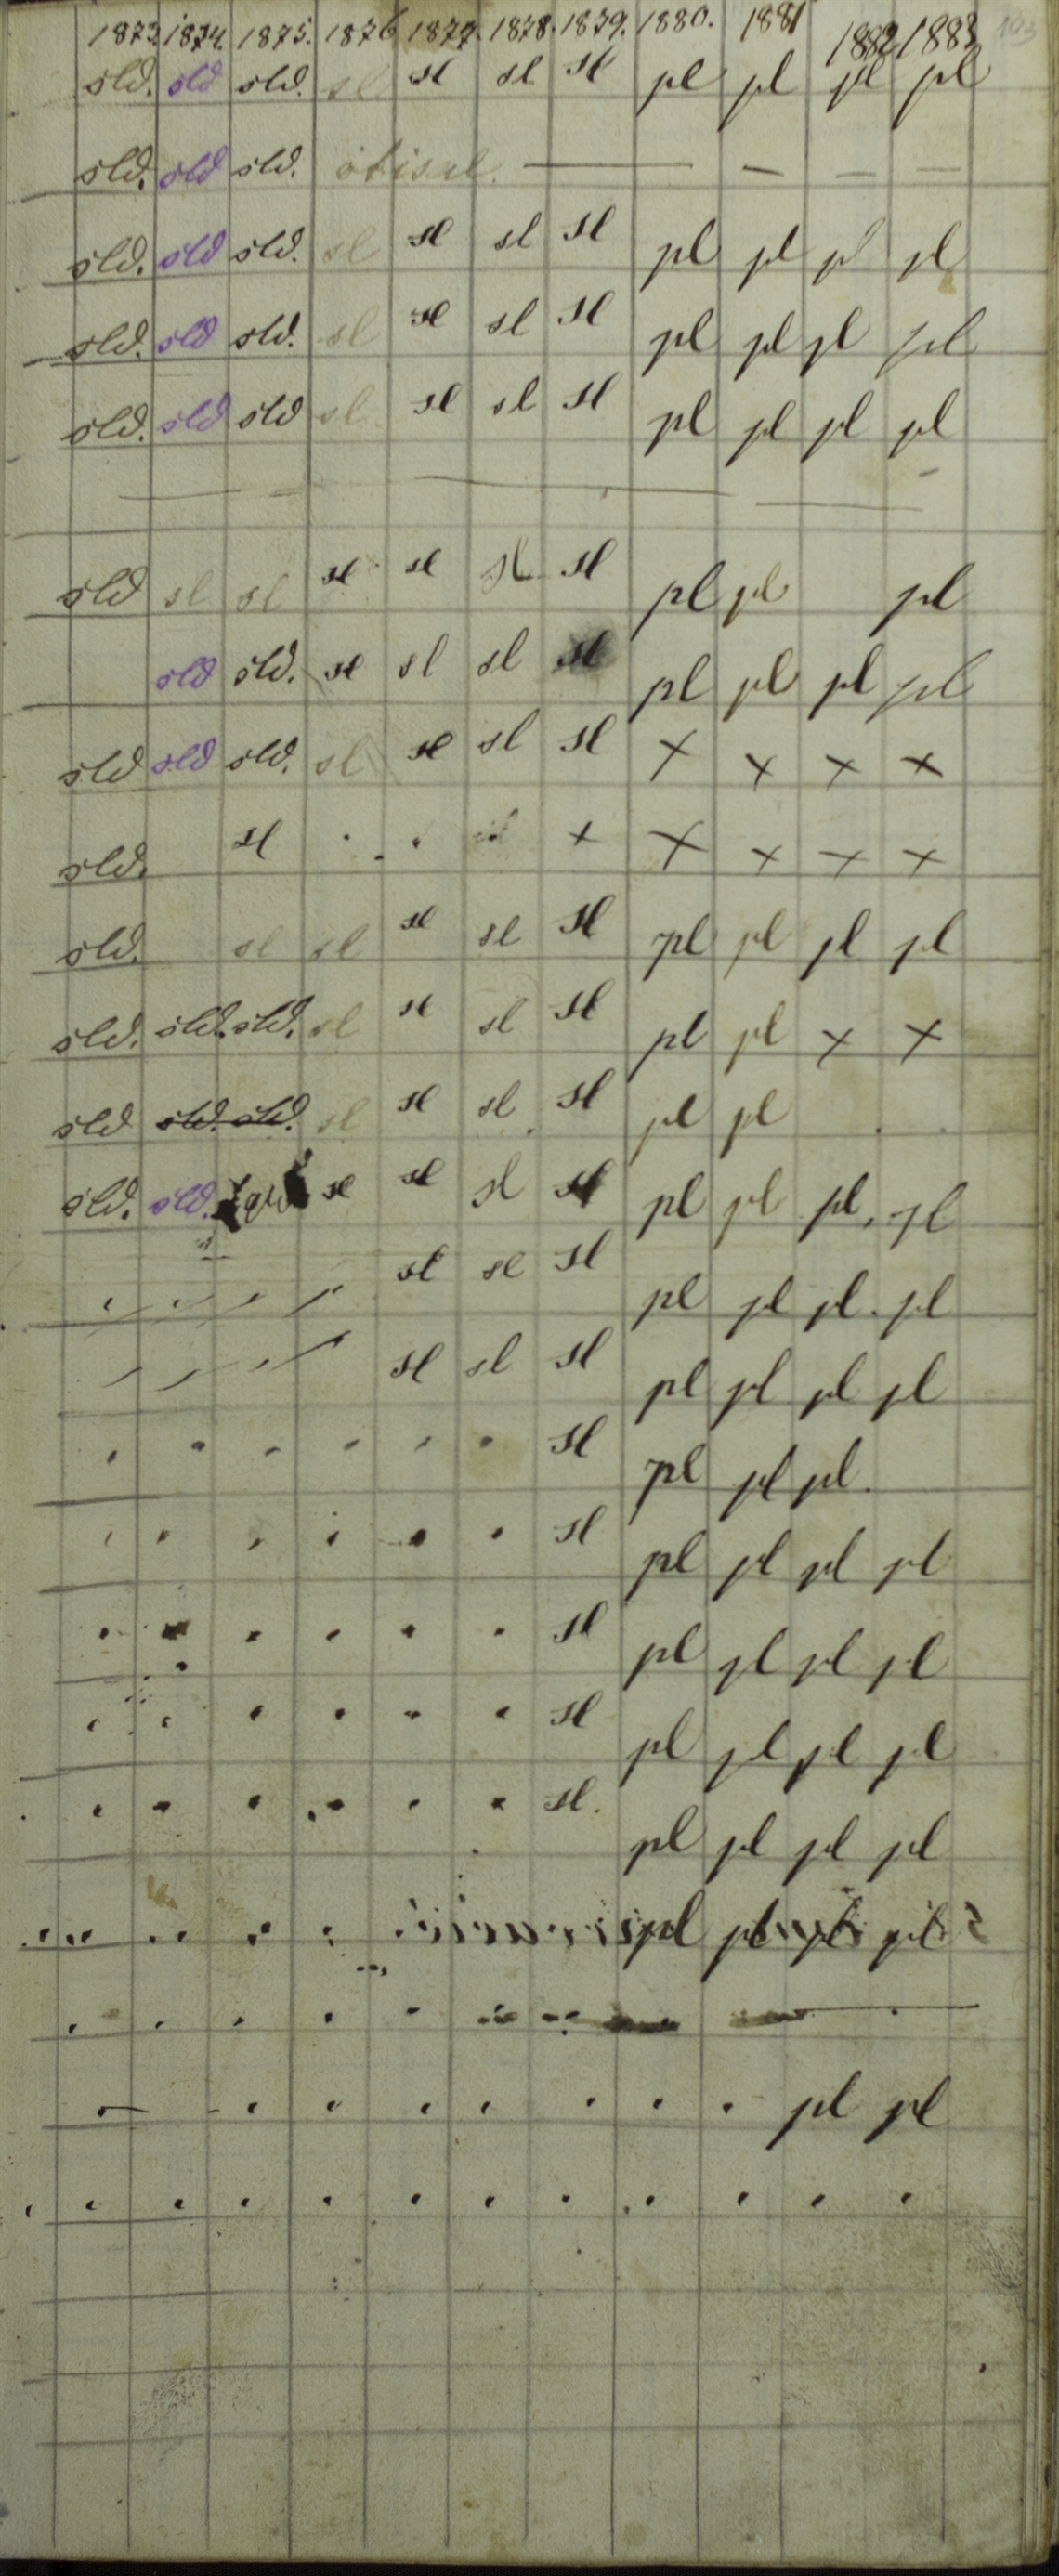 1873 1874. 1875. 1876 1877. 1878. 1879. 1880. 1881 1882 1883
sld. sld sld. sl sl sl sl pl pl pl pl
sld. sld sld. — — — —
sld. sld sld. sl sl sl sl pl pl pl pl
sld. sld sld. sl sl sl sl pl pl pl pl
sld. sld sld sl sl sl sl pl pl pl pl
sld sl sl sl sl sl sl pl pl pl
sld sld. sl sl sl sl pl pl pl pl
sld sld sld. sl sl sl sl x x x x
sld. sl . . x x x x x
sld. sl sl sl sl sl pl pl pl pl
sld. sld. sld. sl sl sl sl pl pl x x
sld sld. sld. sl sl sl sl pl pl
sld. sld. sl sl sl sl pl pl pl. pl
sl sl sl pl pl pl. pl
sl sl sl pl pl pl pl
. . . . . . sl pl pl pl.
. . . . . . sl pl pl pl pl
. . . . . . sl pl pl pl pl
. . . . . . sl pl pl pl pl
. . . . . . sl. pl pl pl pl
pl pl pl pl
. . . . . —
. . . . . . . . pl pl
. . . . . . . . . . .